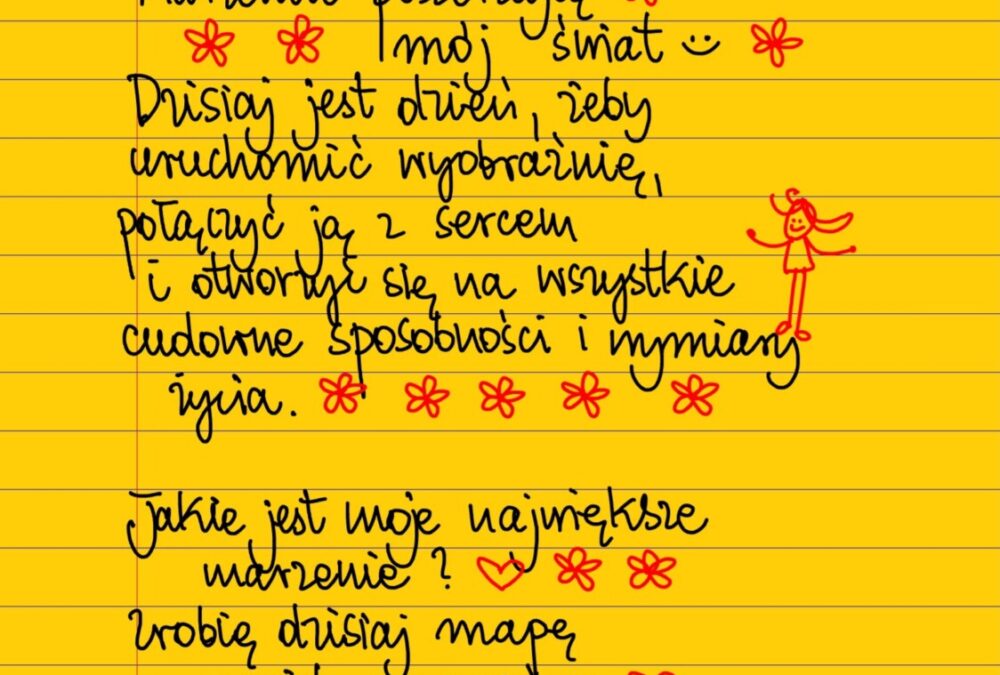 mój świat
Dzisiaj jest dzień, żeby
uruchomić wyobraźnię,
połączyć ją z sercem
i otworzyć się na wszystkie
cudowne sposobności i wymiary
życia.
Jakie jest moje największe
marzenie?
Zrobię dzisiaj mapę